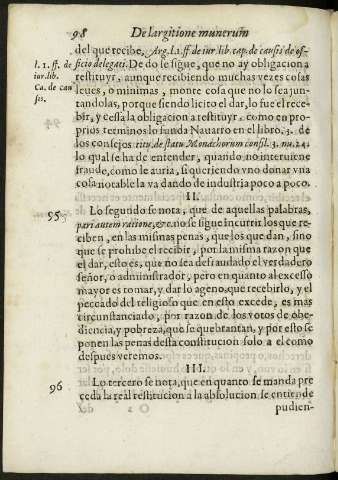 98 De largitione munerum
del que recibe, Arg. l. 1. ff de iur lib. cap. de causis de of-
l. 1. ff. de
iur. lib.
Ca. de cau
sis.
ficio delegati. De do se sigue, que no ay obligacion a
restituyr, aunque recibiendo muchas vezes cosas
leues, o minimas, monte cosa que no lo sea jun-
tandolas, porque siendo licito el dar, lo fue el rece-
bir, y cessa la obligacion a restituyr, como en pro-
prios terminos lo funda Nauarro en el libro. 3. de
dos consejos titu. de statu Monachorum consil. 3. nu. 24.
lo qual se ha de entender, quando no interuiene
fraude, como le auria, si queriendo vno donar vna
cosa notable la va dando de industria poco a poco.
II.
95 Lo segundo se nota, que de aquellas palabras,
pari autem ratione, &c. no se sigue incurrir los que re-
ciben, en las mismas penas, que los que dan, sino
que se prohibe el recibir, por la misma razon que
el dar, esto es, que no sea defraudado el verdadero
señor, o administrador, pero en quanto al excesso
mayor es tomar, y dar lo ageno, que recebirlo, y el
peccado del religioso que en esto excede, es mas
circunstanciado, por razon de los votos de obe-
diencia, y pobreza, que se quebrantan, y por esto se
ponen las penas desta constitucion solo a el como
despues veremos.
III.
96 Lo tercero se nota, que en quanto se manda pre
ceda la real restitucion a la absolucion, se entiende
pudien-